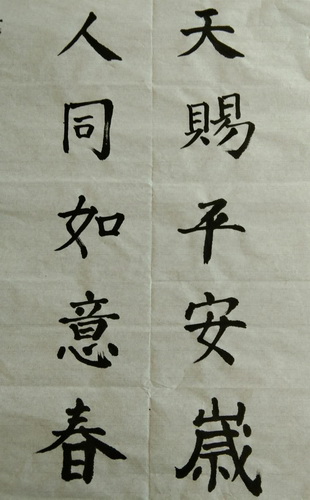 天賜平安歲
人同如意春